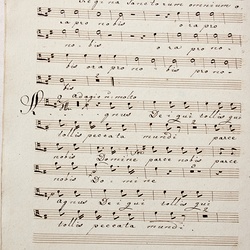 Regina Sanctorum omnium o-
ra pro nobis ora pro
no- bis ora pro no-
bis ora pro no- bis pro no-
bis
Adagio molto
Agnus De- i qui tollis qui
tollis peccata mundi parce
nobis Domine parce nobis parce
nobis Do- mi- ne
Agnus De- i qui tollis qui
tollis peccata mundi.